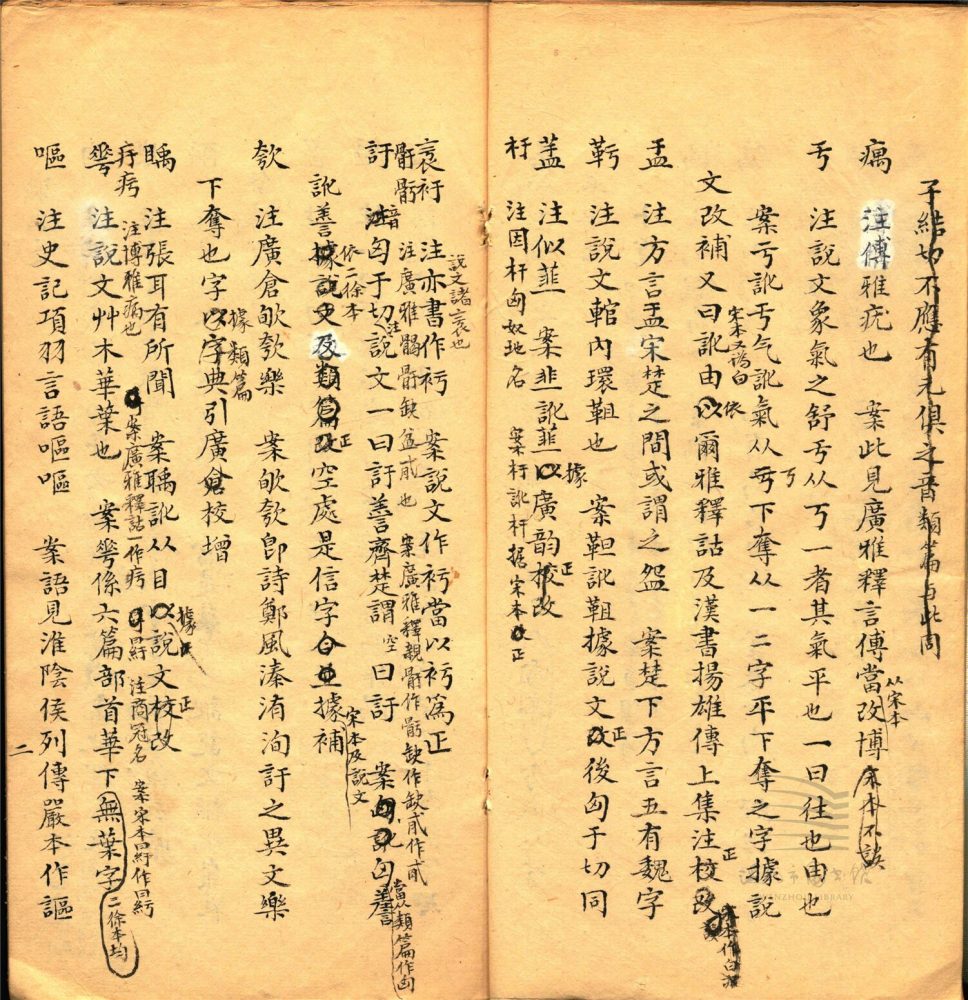 子結切不應有尤俱之音類篇与此同
瘑 注傅雅疣也 案此見廣雅釋言傅當改博 从宋本 宋本不誤
亏 注說文象氣之舒亏从丂一者其氣平也一曰往也由也
案亏訛丂气訛氣从丂下奪从一二字平下奪之字據說
文改補又曰訛由以爾雅釋詁及漢書揚雄傳上集注校改 宋本又譌白 依 正
盂 注方言盂宋楚之間或謂之盌 案楚下方言五有魏字
靬 注說文輨內環靻也 案靼訛靻據說文改後匈于切同 正
䓁 注似韮 案韭訛韮以廣韵校改 據 正
杅 注因杅匈奴地名 案杅訛杆据宋本改正
衺衧 注亦書作衧 案說文作衧當以衧為正 說文諸衺也
骬骭 注廣雅髃骬缺盆甙也 案廣雅釋親骬作骭缺作缺甙作甙
訏 注匈于切說文一曰訏善齊楚謂 空 曰訏 案匈訛匃 當从類篇作匈
訛善據說文及類篇改空處是信字合並據補 依二徐本 正 宋本及說文
欨 注廣倉欨欨樂 案欨欨卽詩鄭風溱洧洵訏之異文樂
下奪也字以字典引廣倉校增 據類篇
䏏 注張耳有所聞 案䏏訛从目以說文校改 據 正
疛疞 注博雅病也 案廣雅釋詁一作疞 冔 注商冠名 案宋本
䔢 注說文艸木華葉也 案䔢係六篇部首華下無葉字 二徐本均
嘔 注史記項羽言語嘔嘔 案語見淮陰侯列傳嚴本作謳
二